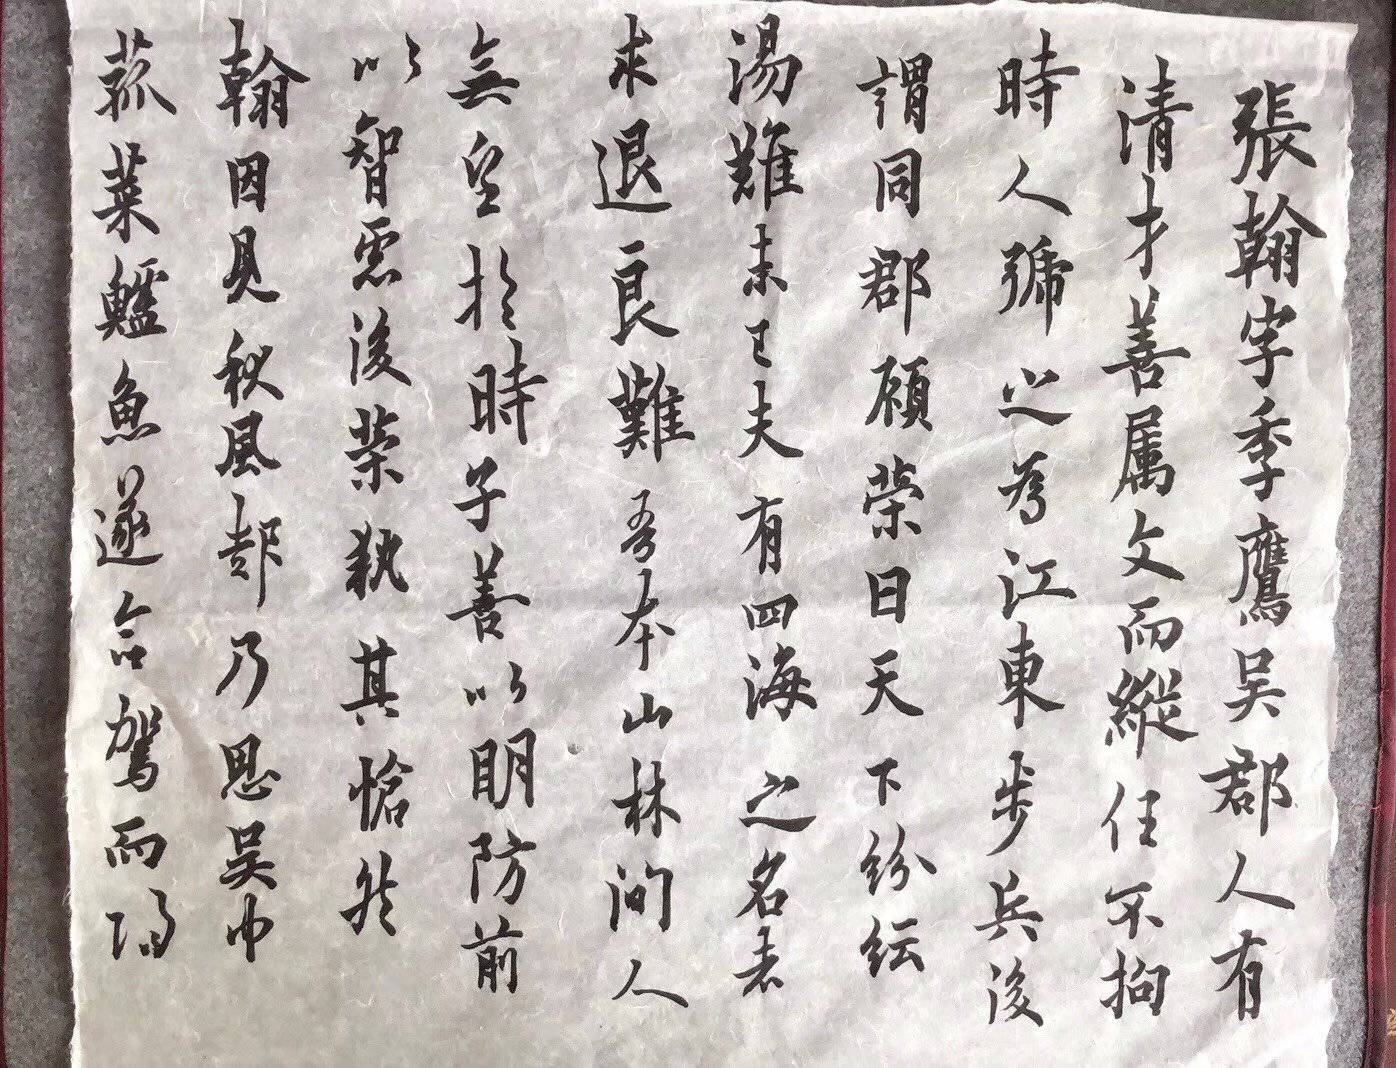 張翰字季鷹吳郡人有
清才善属文而縱任不拘
時人號之為江東步兵後
謂同郡顧榮曰天下紛紜
湯難未已夫有四海之名者
求退良難吾本山林間人
無望於時子善以明防前
以智慮後榮執其愴然
翰因見秋風起乃思吳中
菰菜鱸魚遂命駕而歸